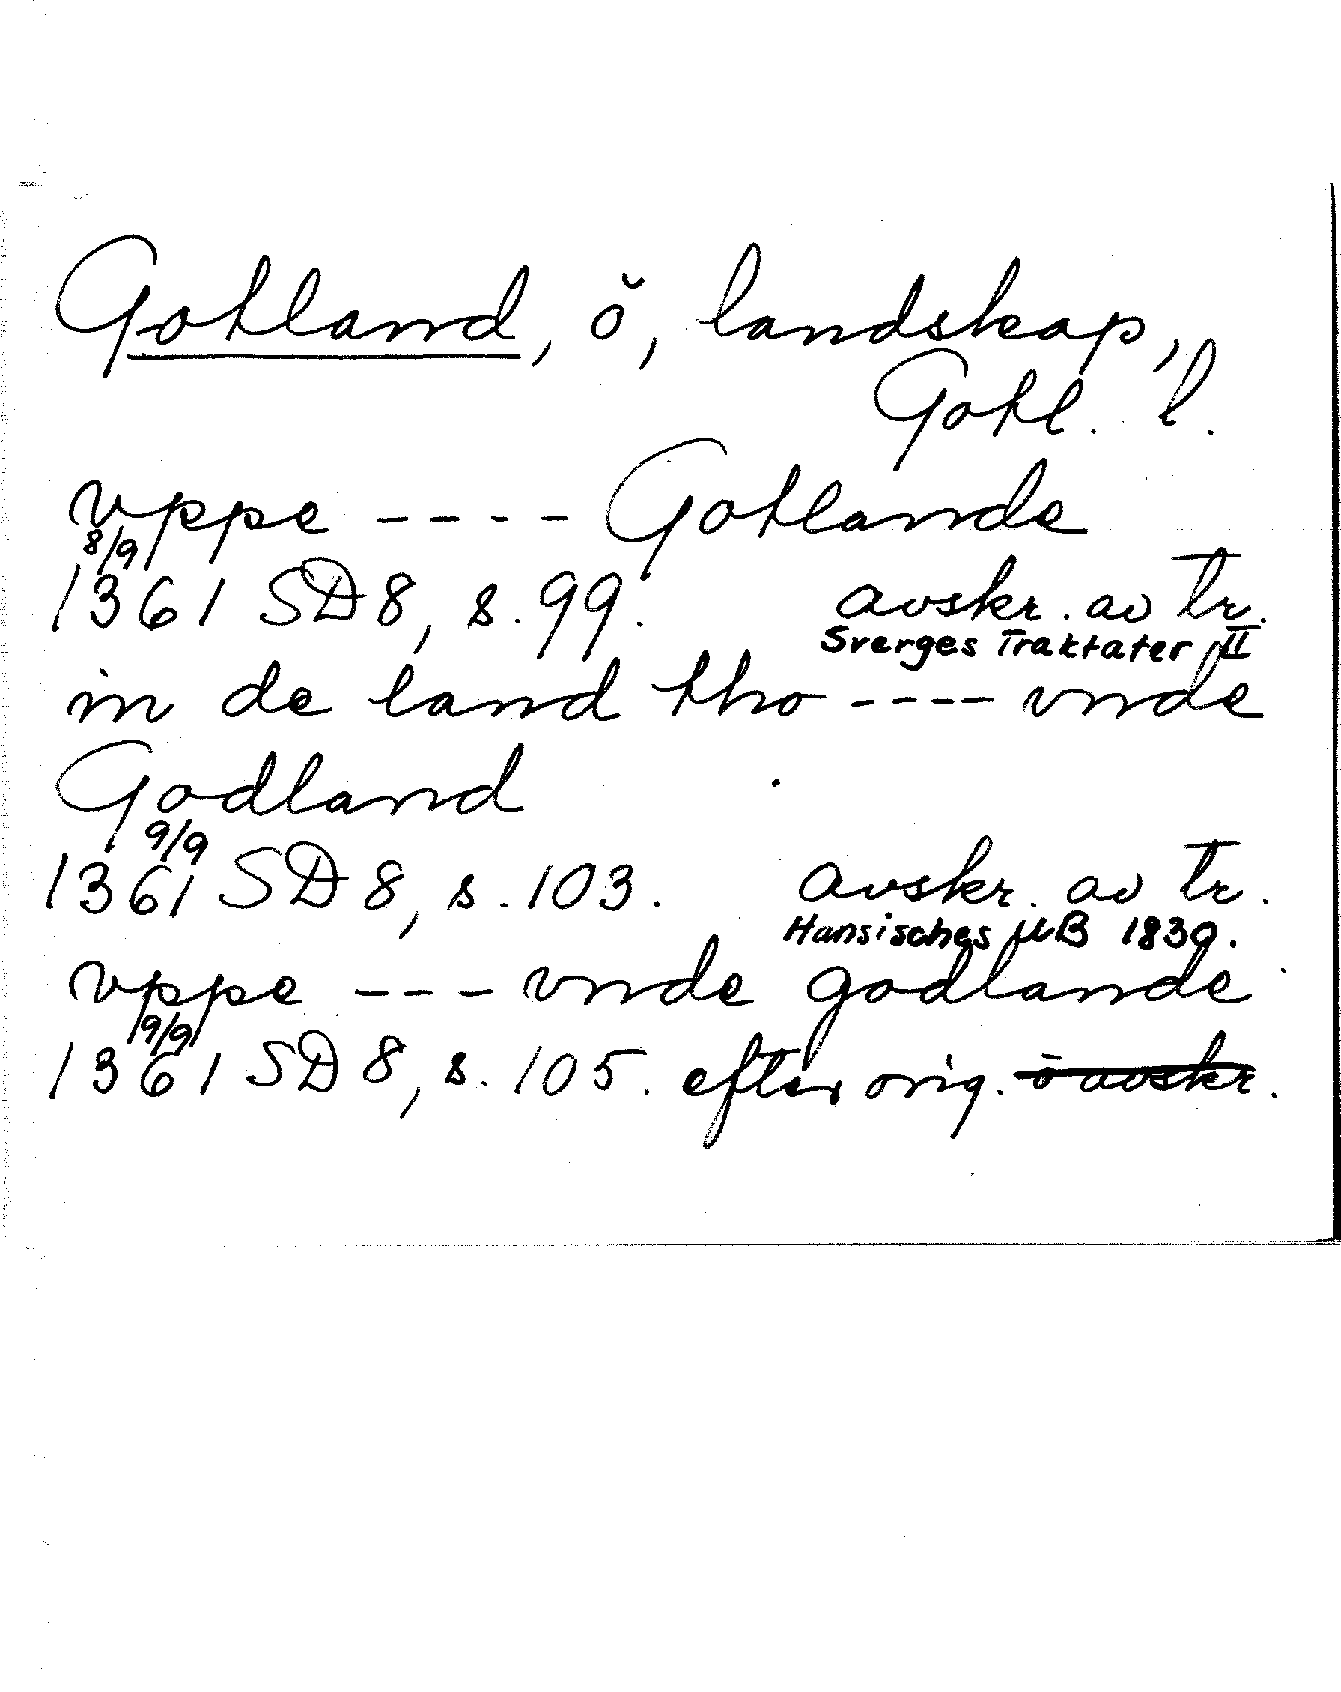 Gotland, ö, landskap,
Gotl. l.
vppe ---- Gotlande
8/9
1361 SD 8, s. 99. avskr. av tr.
Sverges Traktater II
in de land tho ---- vnde
Godland
9/9
1361 SD 8, s. 103. avskr. av tr.
Hansisches UB 1839.
vppe --- vnde godlande
9/9
1361 SD 8, s. 105. efter orig. i avskr.